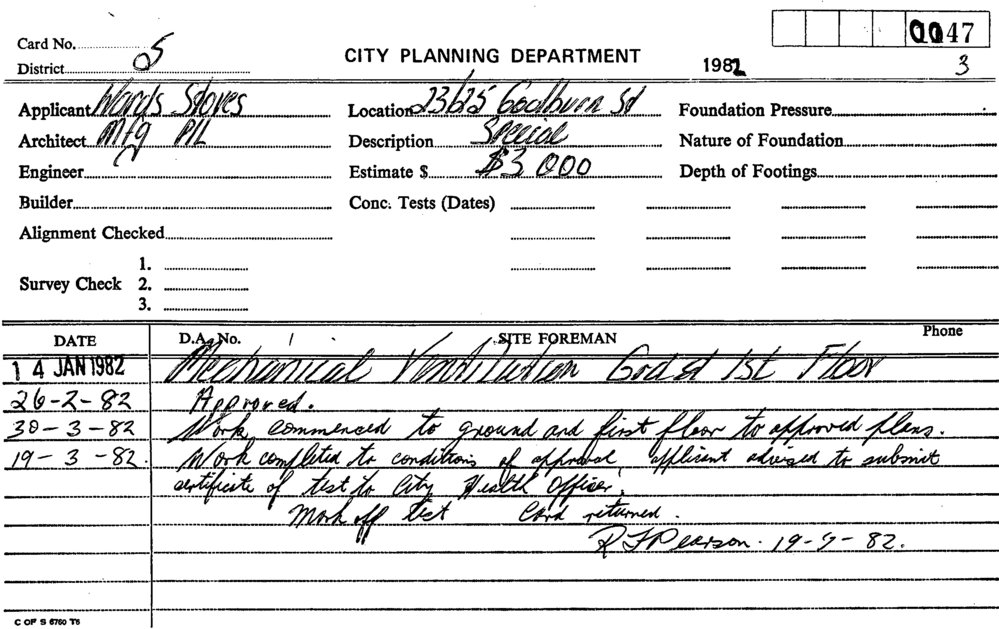 0047
Card No. 5
District
CITY PLANNING DEPARTMENT
1982 3
Applicant Wards Stoves Location 23625 Goulburn St Foundation Pressure
Architect Mfg P/L Description Special Nature of Foundation
Engineer Estimate $ $3 000 Depth of Footings
Builder Conc. Tests (Dates)
Alignment Checked
1.
Survey Check 2.
3.
DATE D.A. No. SITE FOREMAN Phone
14 JAN 1982 Mechanical Ventilation Grd & 1st Floor
26-2-82 Approved.
30-3-82 Work commenced to ground and first floor to approved plans.
19-3-82. Work completed to conditions of approval, applicant advised to submit
certificate of test to City Health Officer.
Mark off test Card returned.
R F Pearson. 19-9-82.
C OF S 6760 T5